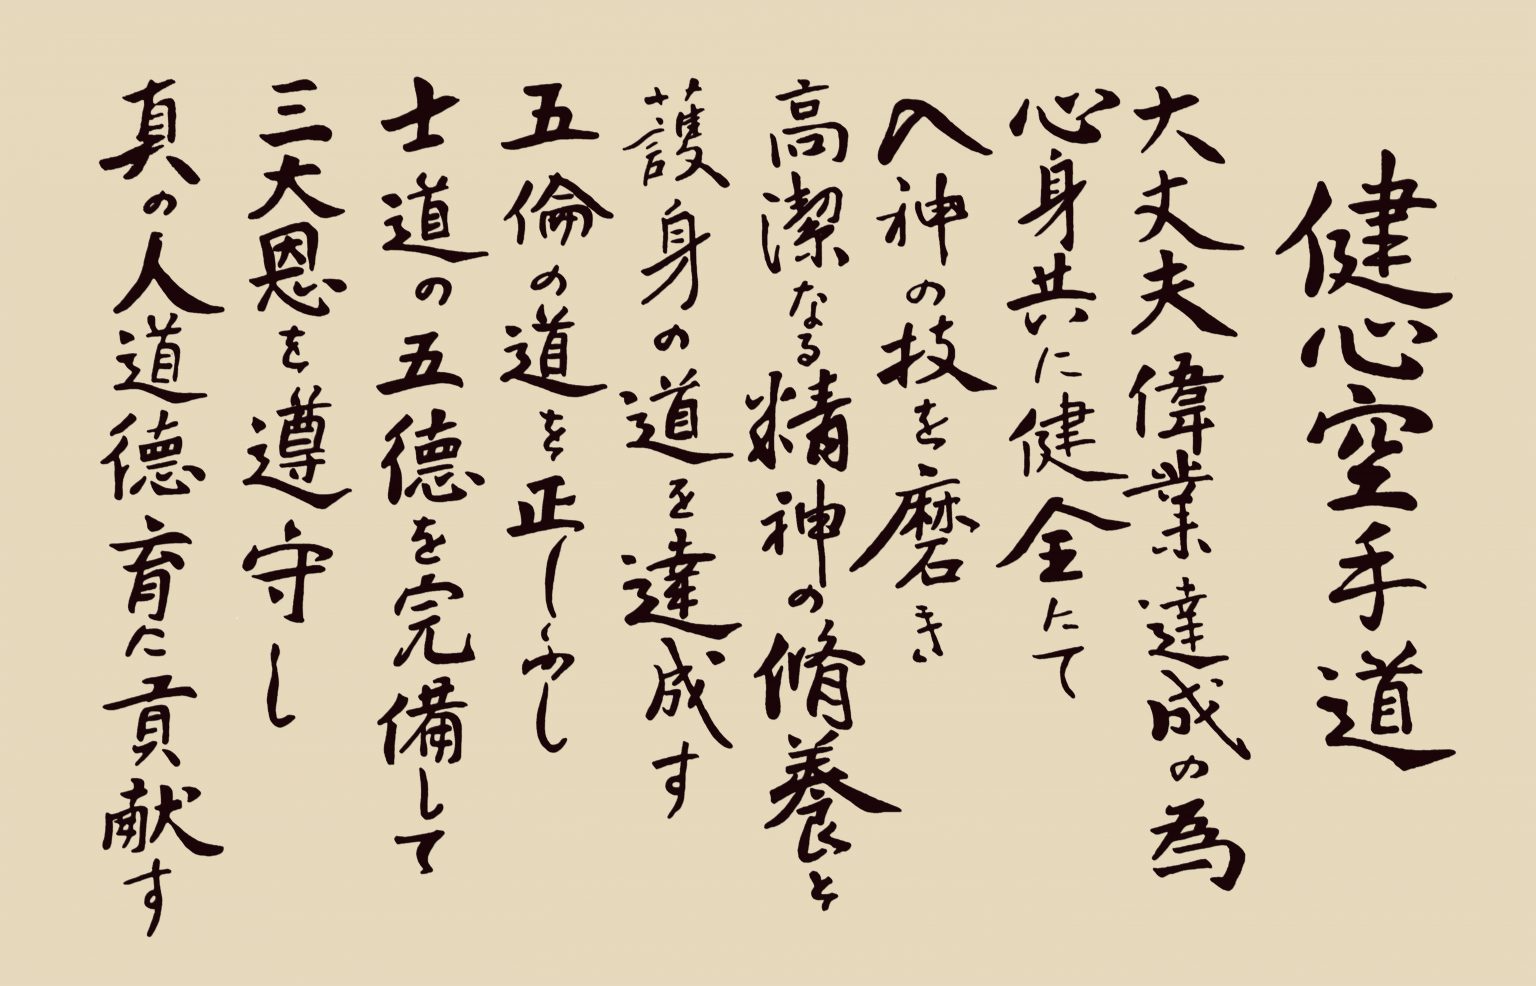 健心空手道
大丈夫偉業達成の為
心身共に健全にて
入神の技を磨き
高潔なる精神の脩養と
護身の道を達成す
五倫の道を正しふし
士道の五徳を完備して
三大恩を遵守し
真の人道徳育に貢献す